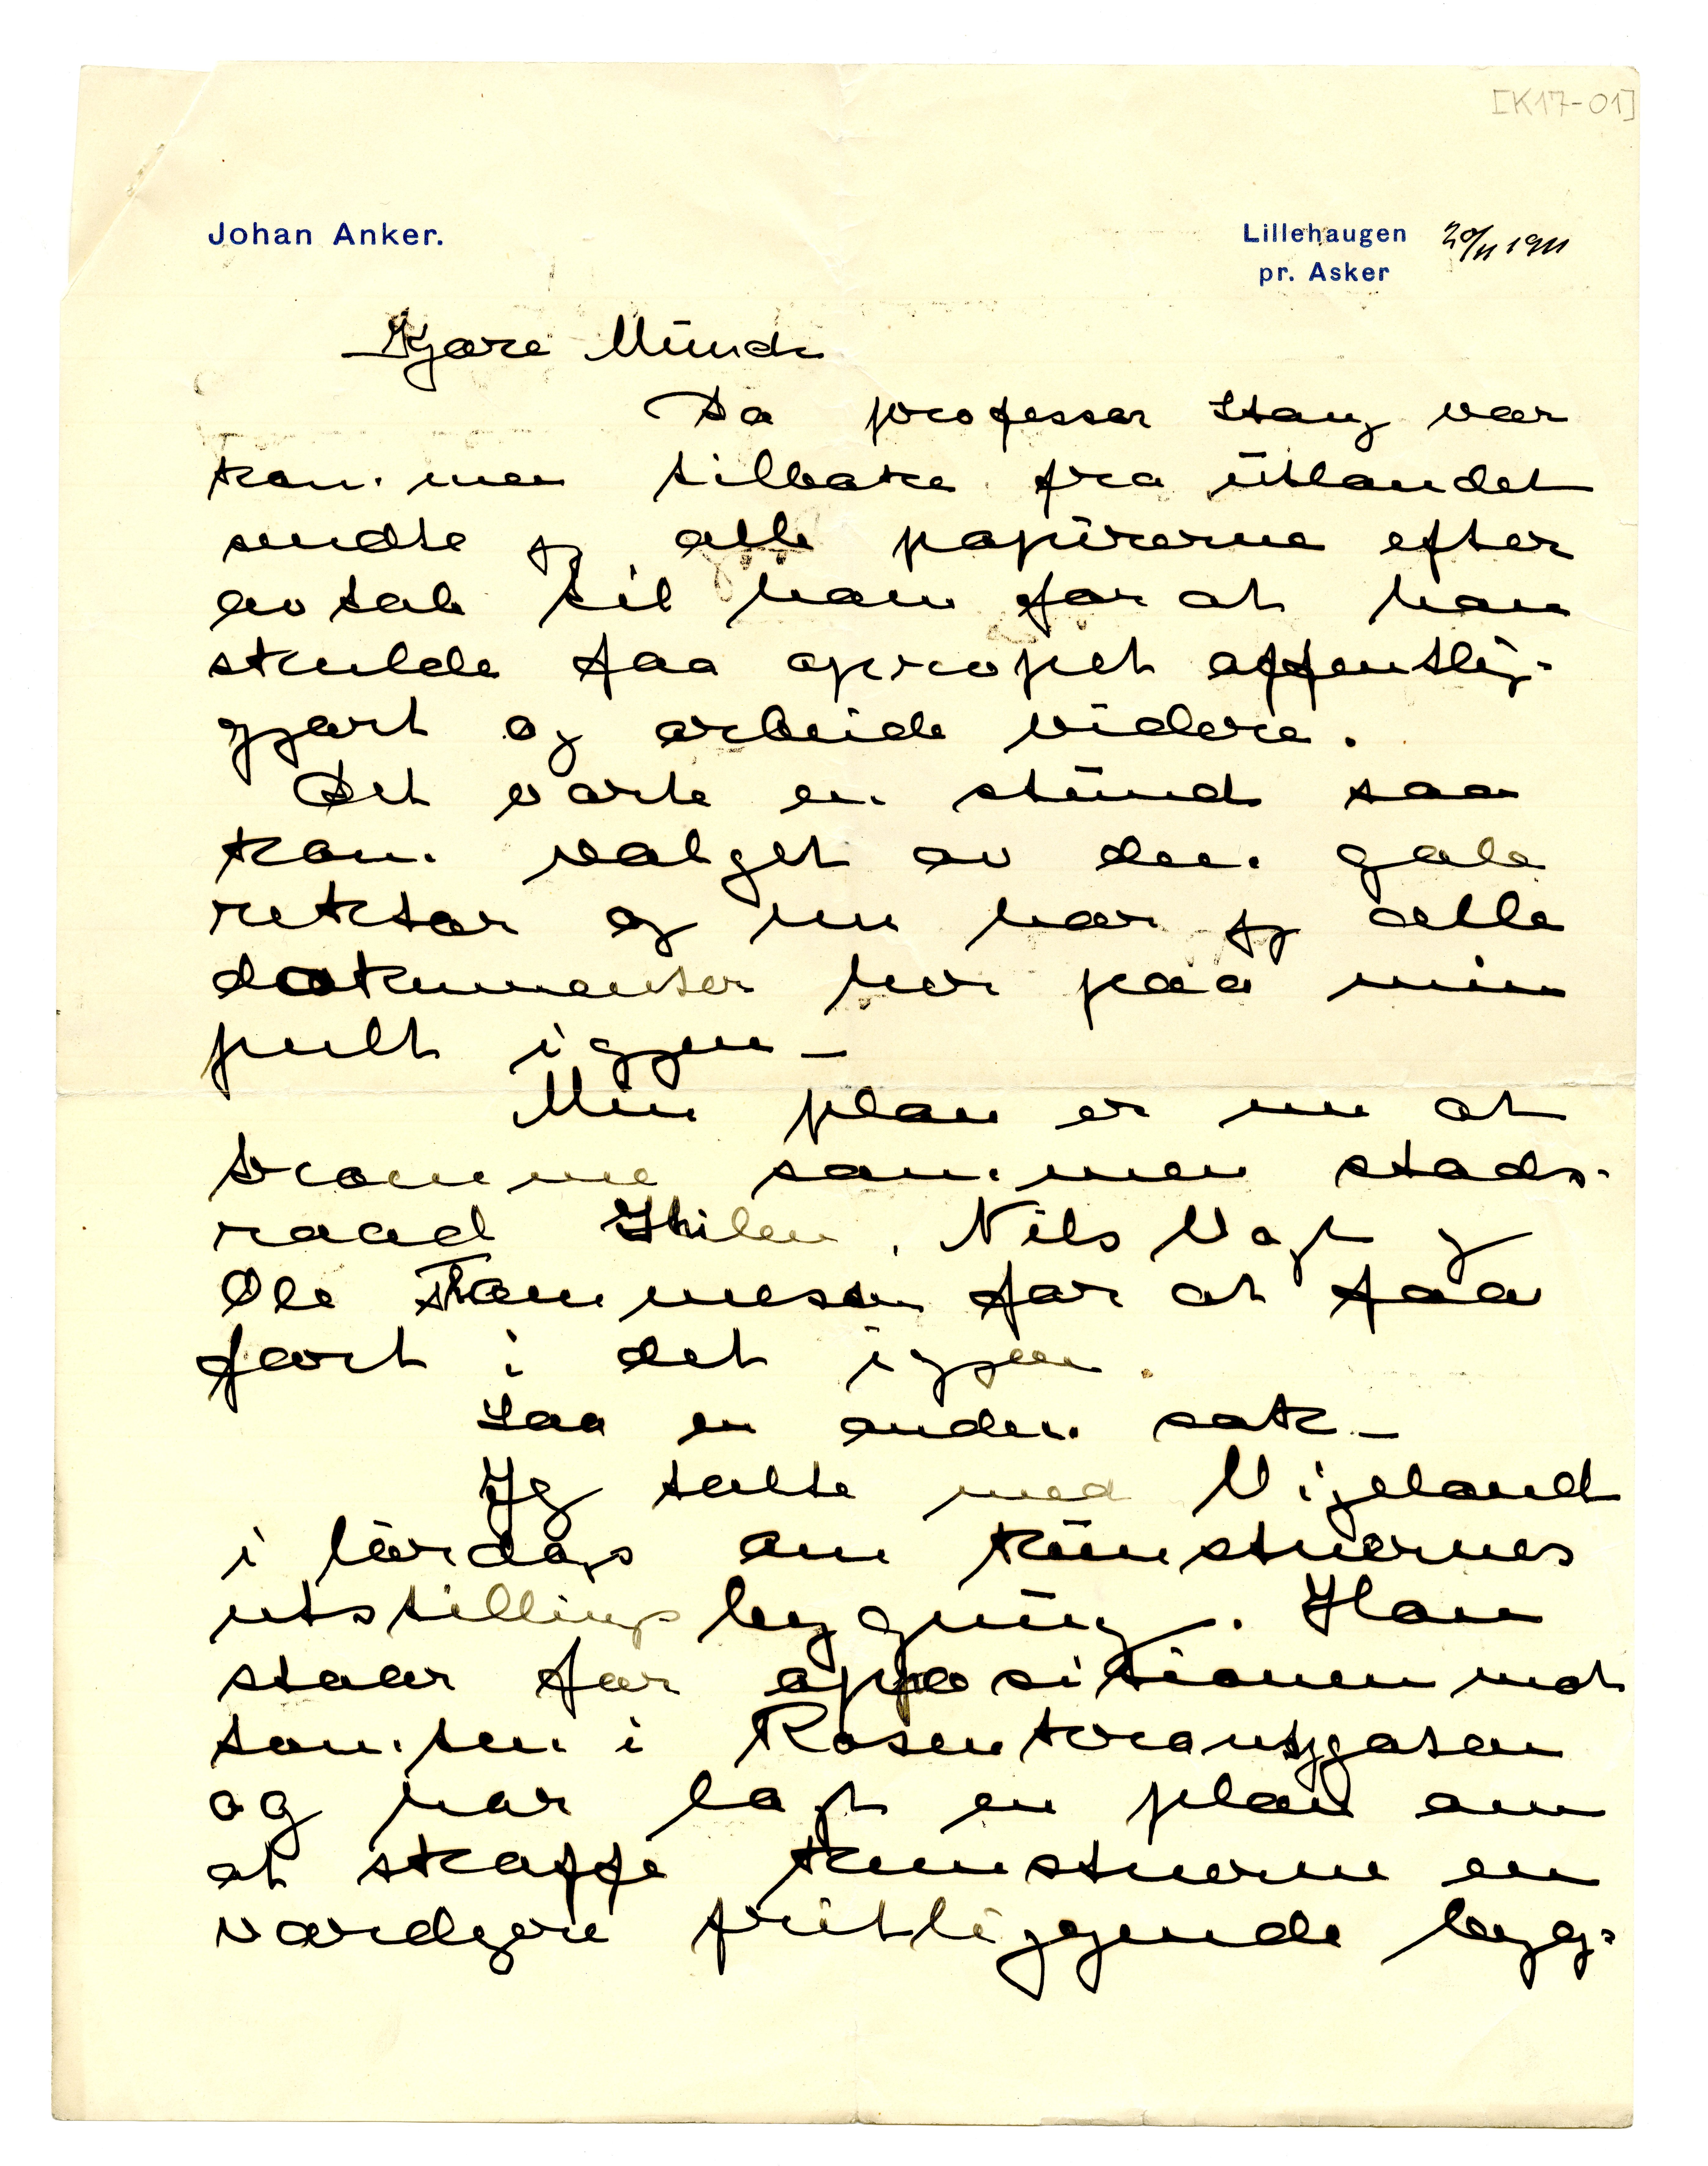 [K17-01]
Johan Anker.
Lillehaugen 20/11 1911
pr. Asker
Kjære Munch
Da professor Stang var
kommen tilbake fra utlandet
sendte jeg alle papirerne efter
avtale til ham for at han
skulde faa opropet offentlig-
gjort og arbeide videre.
Det varte en stund saa
kom valget av den gale
rektor og nu har jeg alle
dokumenter her paa min
pult igjen –
Min plan er nu at
tromme sammen stads-
raad Nils Vogt og
Ole Thommesen for at faa
fart i det igjen.
Saa en anden sak –
Jeg talte med Vigeland
i lördags om kunstnernes
utstillingsbygning. Han
staar for oppositionen mot
tomten i Rosenkrantzgaten
og har lagt en plan om
at skaffe kunstnerne en
værdigere fritliggende byg-